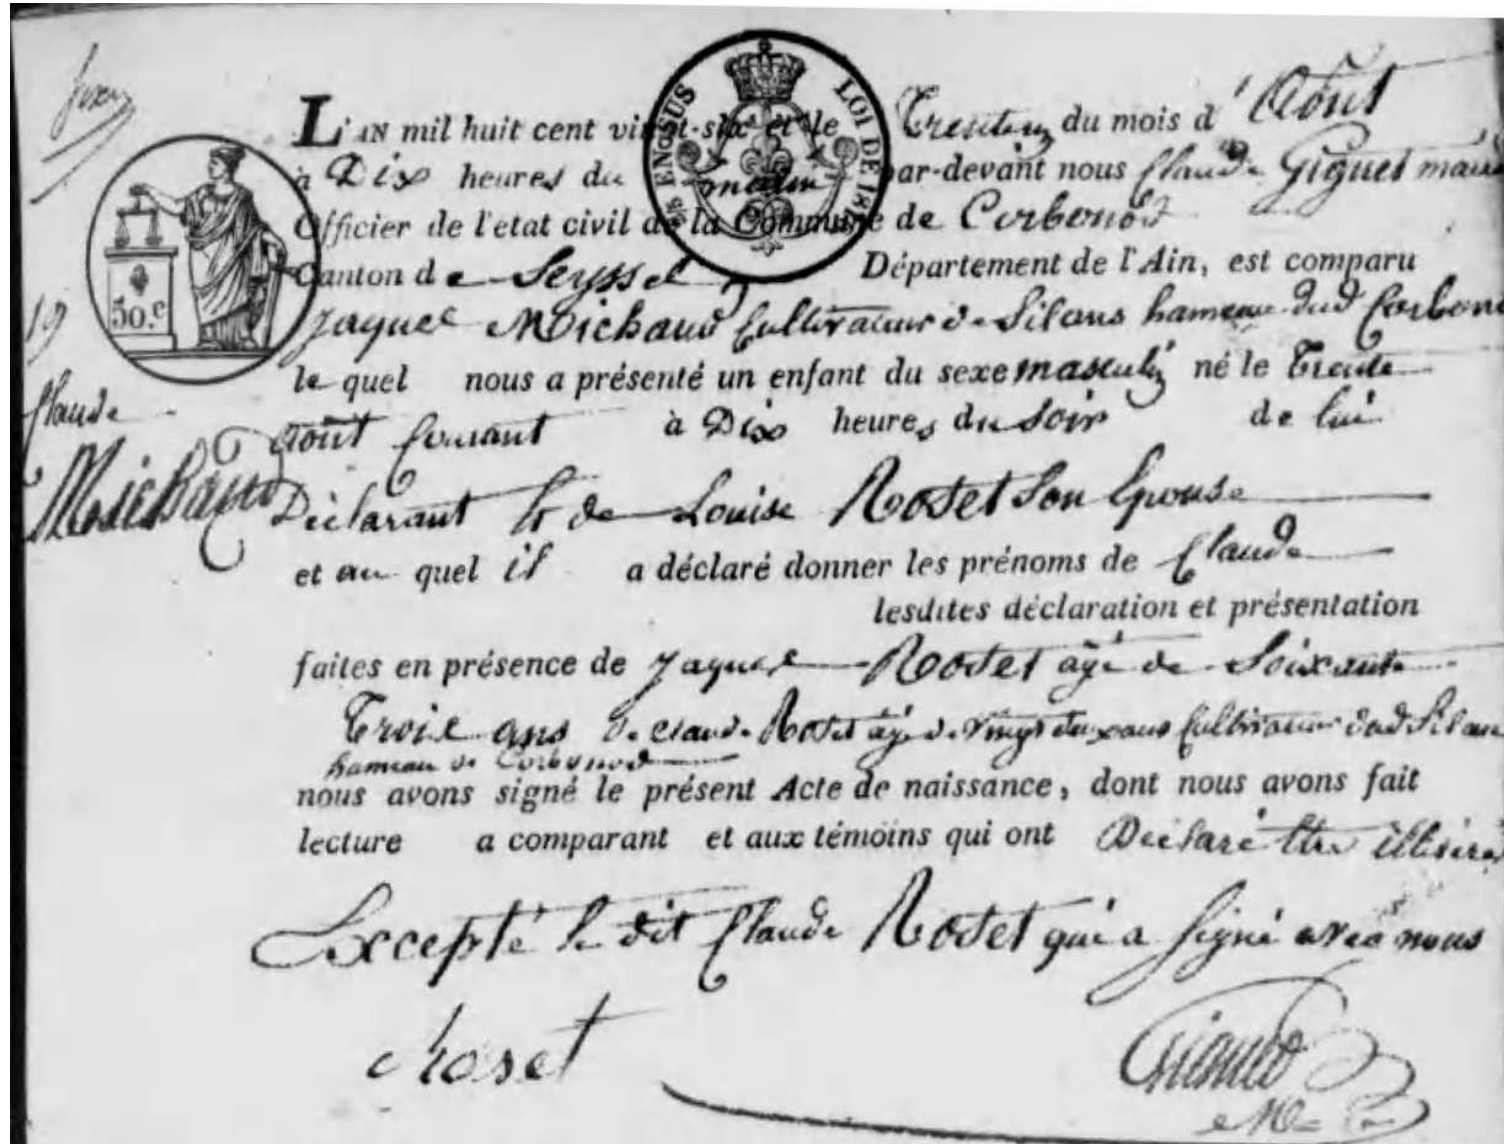 L'AN mil huit cent vingt-six et le Trente un du mois d'Août
à Dix heures du matin par-devant nous Claude Giguet maire
Officier de l'etat civil de la Commune de Corbonod
5/s EN SUS
LOI DE 1816
50.c
Canton de Seyssel Département de l'Ain, est comparu
19
Jaques Michaud Cultivateur de Silans hameau dud Corbonod
le quel nous a présenté un enfant du sexe masculin né le Trente
Claude
Août Courant à Dix heures du Soir de lui
Michaud
Déclarant et de Louise Roset son Epouse
et au quel il a déclaré donner les prénoms de Claude
lesdites déclaration et présentation
faites en présence de Jaques Roset âgé de Soixante
Trois ans de Claude Roset âgé de vingt deux ans Cultivateurs dud Silans
hameau de Corbonod
nous avons signé le présent Acte de naissance, dont nous avons fait
lecture a comparant et aux témoins qui ont Déclaré être illisirés
Excepté le dit Claude Roset qui a signé avec nous
Roset
Giguet